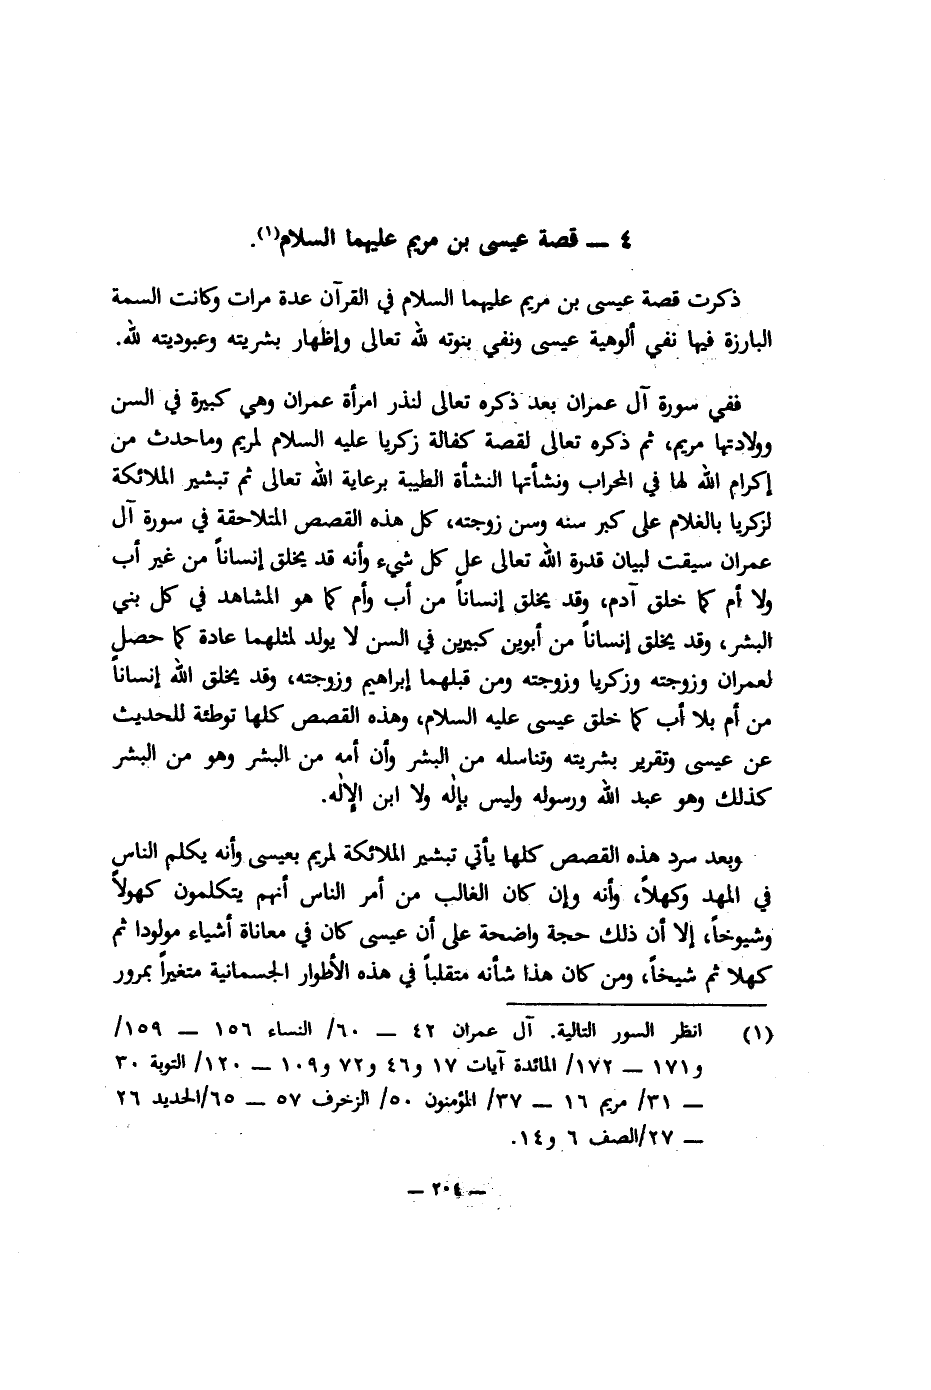 ٤ — قصة عيسى بن مريم عليهما السلام(١).
ذكرت قصة عيسى بن مريم عليهما السلام في القرآن عدة مرات وكانت السمة
البارزة فيها نفي ألوهية عيسى ونفي بنوته لله تعالى وإظهار بشريته وعبوديته لله.
ففي سورة آل عمران بعد ذكره تعالى لنذر امرأة عمران وهي كبيرة في السن
وولادتها مريم، ثم ذكره تعالى لقصة كفالة زكريا عليه السلام لمريم وماحدث من
إكرام الله لها في المحراب ونشأتها النشأة الطيبة برعاية الله تعالى ثم تبشير الملائكة
لزكريا بالغلام على كبر سنه وسن زوجته، كل هذه القصص المتلاحقة في سورة آل
عمران سيقت لبيان قدرة الله تعالى عل كل شيء وأنه قد يخلق إنساناً من غير أب
ولا أم كما خلق آدم، وقد يخلق إنساناً من أب وأم كما هو المشاهد في كل بني
البشر، وقد يخلق إنساناً من أبوين كبيرين في السن لا يولد لمثلهما عادة كما حصل
لعمران وزوجته وزكريا وزوجته ومن قبلهما إبراهيم وزوجته، وقد يخلق الله إنساناً
من أم بلا أب كما خلق عيسى عليه السلام، وهذه القصص كلها توطئة للحديث
عن عيسى وتقرير بشريته وتناسله من البشر وأن أمه من البشر وهو من البشر
كذلك وهو عبد الله ورسوله وليس بإلٰه ولا ابن الإلٰه.
وبعد سرد هذه القصص كلها يأتي تبشير الملائكة لمريم بعيسى وأنه يكلم الناس
في المهد وكهلاً، وأنه وإن كان الغالب من أمر الناس أنهم يتكلمون كهولاً
وشيوخاً، إلا أن ذلك حجة واضحة على أن عيسى كان في معاناة أشياء مولودا ثم
كهلا ثم شيخاً، ومن كان هذا شأنه متقلباً في هذه الأطوار الجسمانية متغيراً بمرور
(١) انظر السور التالية. آل عمران ٤٢ — ٦٠/ النساء ١٥٦ — ١٥٩/
و١٧١ — ١٧٢/ المائدة آيات ١٧ و٤٦ و٧٢ و١٠٩ — ١٢٠/ التوبة ٣٠
— ٣١/ مريم ١٦ — ٣٧/ المؤمنون ٥٠/ الزخرف ٥٧ — ٦٥/الحديد ٢٦
— ٢٧/الصف ٦ و١٤.
— ٢٠٤ —